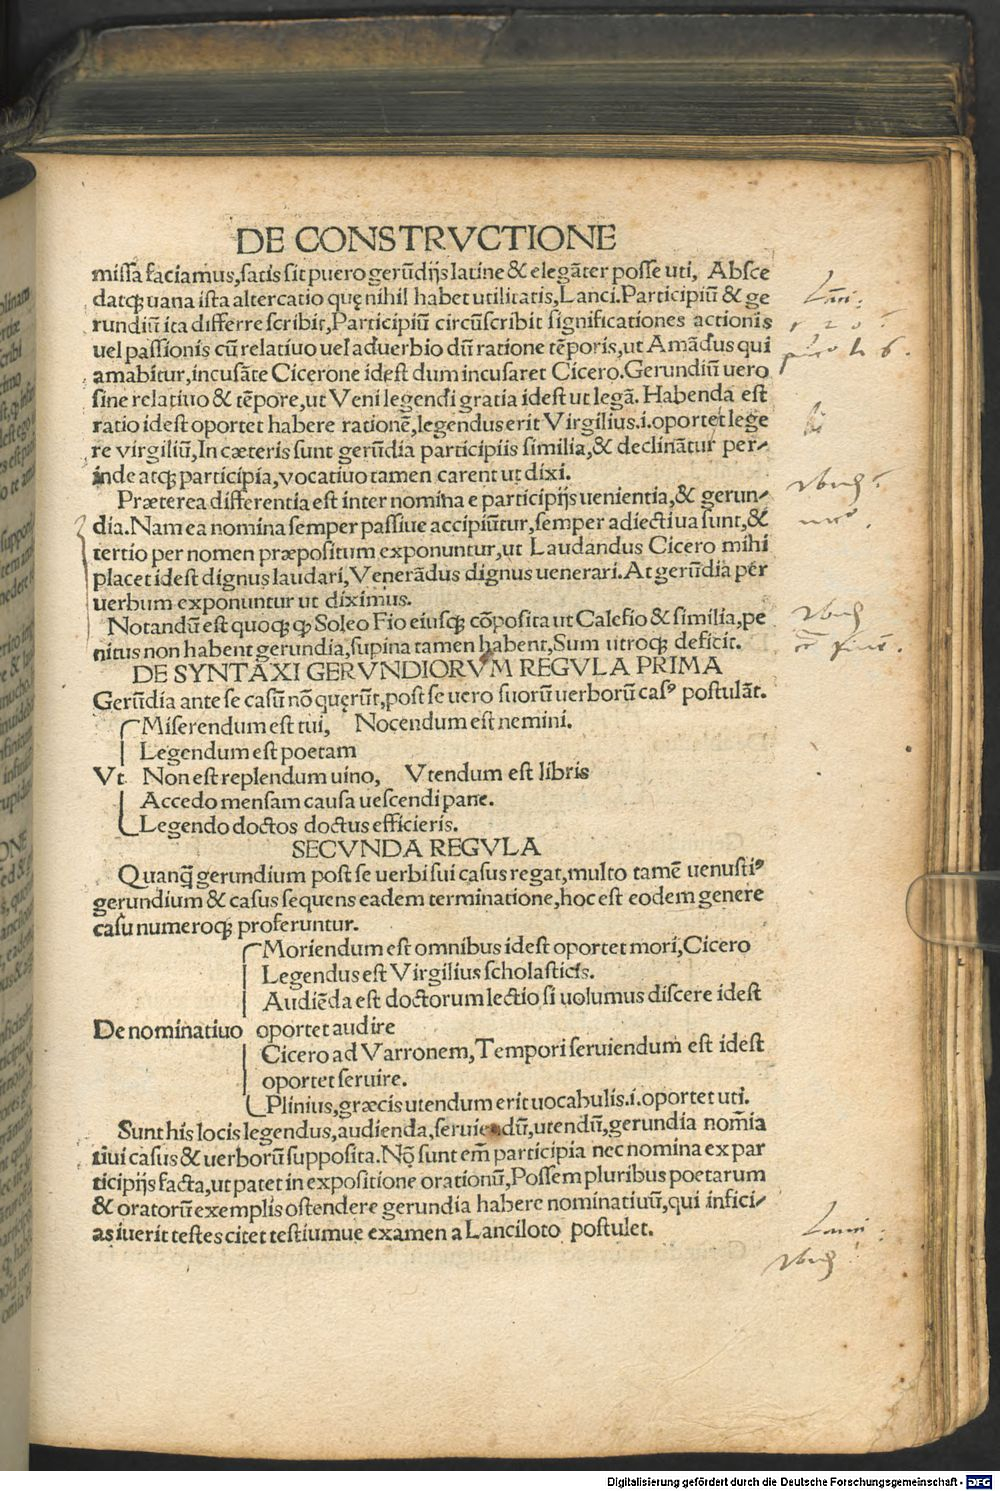 DE CONSTRVCTIONE
missa faciamus,satis sit puero gerūdijs latine & elegāter posse uti, Absce
datqꝫ uana ista altercatio quę nihil habet utilitatis,Lanci.Participiū & ge
rundiū ita differre scribit,Participiū circūscribit significationes actionis
uel passionis cū relatiuo uel aduerbio dū ratione tēporis,ut Amādus qui
amabitur,incusāte Cicerone idest dum incusaret Cicero.Gerundiū uero
sine relatiuo & tēpore,ut Veni legendi gratia idest ut legā. Habenda est
ratio idest oportet habere rationē,legendus erit Virgilius.i.oportet lege
re virgiliū,In cæteris sunt gerūdia participiis similia,& declināтur per-
inde atqꝫ participia,vocatiuo tamen carent ut dixi.
Præterea differentia est inter nomina e participijs uenientia,& gerun-
dia.Nam ea nomina semper passiue accipiūtur,semper adiectiua sunt,&
tertio per nomen præpositum exponuntur,ut Laudandus Cicero mihi
placet idest dignus laudari,Venerādus dignus uenerari.At gerūdia per
uerbum exponuntur ut diximus.
Notandū est quoqꝫ ꝙ Soleo Fio eiusqꝫ cōposita ut Calefio & similia,pe
nitus non habent gerundia,supina tamen habent,Sum utroqꝫ deficit.
DE SYNTAXI GERVNDIORVM REGVLA PRIMA
Gerūdia ante se casū nō quęrūt,post se uero suorū uerborū casꝰ postulāt.
Miserendum est tui, Nocendum est nemini.
Legendum est poetam
Vt Non est replendum uino, Vtendum est libris
Accedo mensam causa uescendi pane.
Legendo doctos doctus efficieris.
SECVNDA REGVLA
Quanqꝫ gerundium post se uerbi sui casus regat,multo tamē uenustiꝰ
gerundium & casus sequens eadem terminatione,hoc est eodem genere
casu numeroqꝫ proferuntur.
Moriendum est omnibus idest oportet mori,Cicero
Legendus est Virgilius scholasticis.
Audiēda est doctorum lectio si uolumus discere idest
De nominatiuo oportet audire
Cicero ad Varronem,Tempori seruiendum est idest
oportet seruire.
Plinius,græcis utendum erit uocabulis.i.oportet uti.
Sunt his locis legendus,audienda,seruiendū,utendū,gerundia nom̄ia
tiui casus & uerborū supposita.Nō sunt em̄ participia nec nomina ex par
ticipijs facta,ut patet in expositione orationū,Possem pluribus poetarum
& oratorū exemplis ostendere gerundia habere nominatiuū,qui infici-
as iuerit testes citet testiumue examen a Lanciloto postulet.
Digitalisierung gefördert durch die Deutsche Forschungsgemeinschaft - DFG